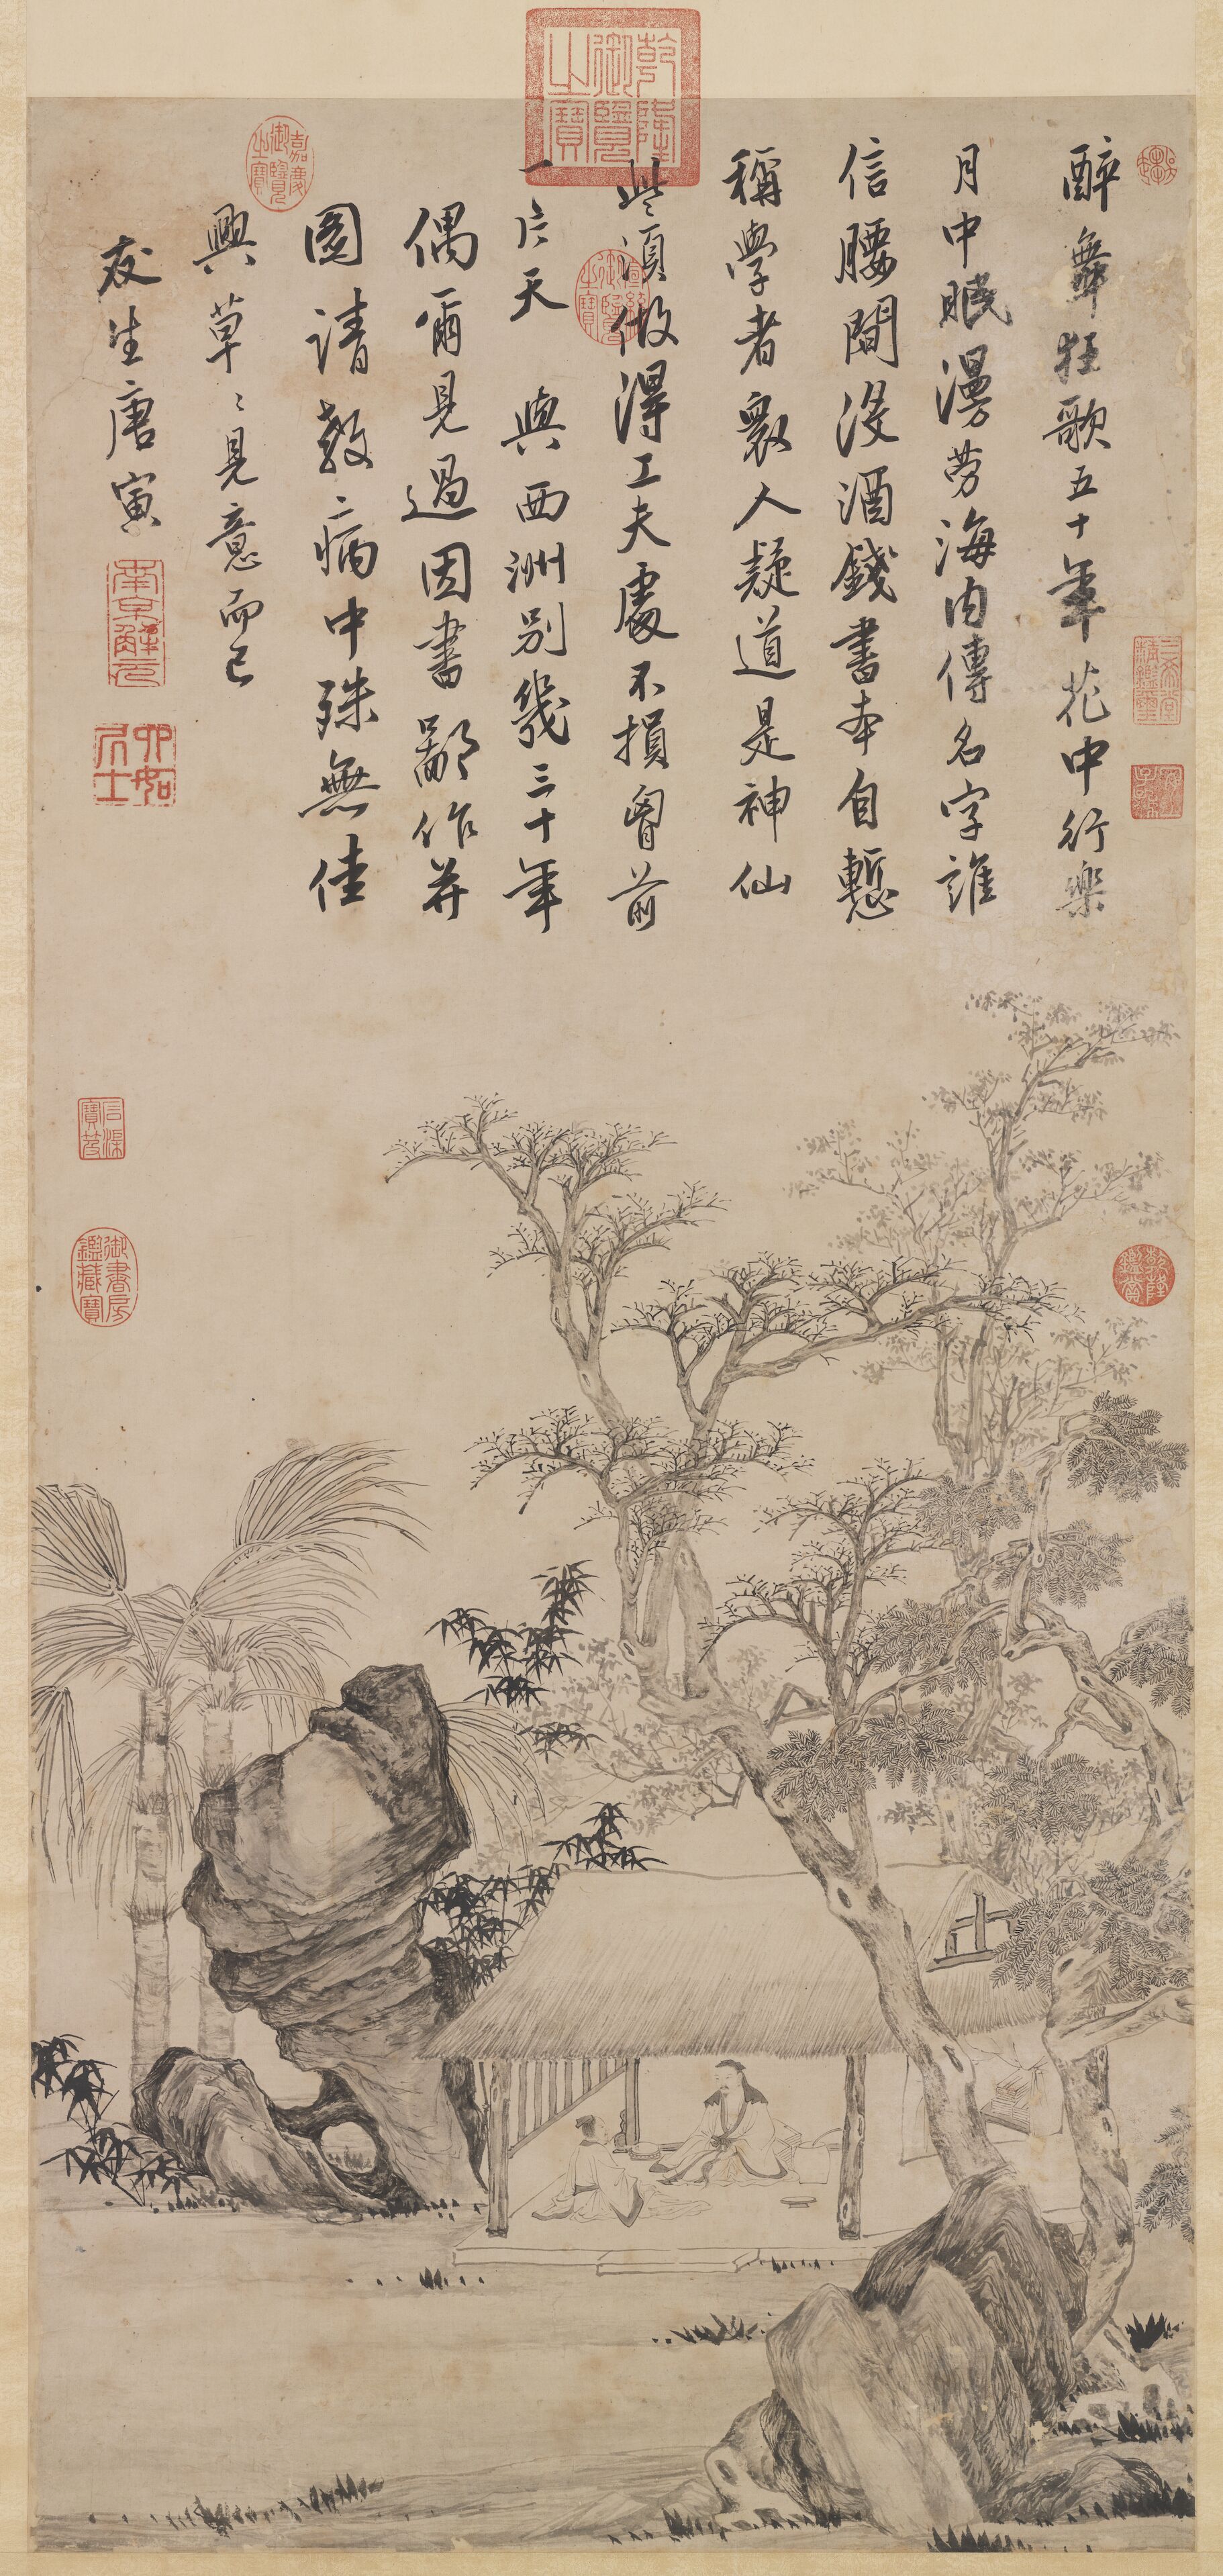 吳趨
醉舞狂歌五十年花中行樂
月中眠漫勞海內傳名字誰
信腰間沒酒錢書本自慙
稱學者衆人疑道是神仙
些須做得工夫處不損胷前
一片天 與西洲別幾三十年
偶爾見過因書鄙作并
圖請教病中殊無佳
興草々見意而已
友生唐寅
南京解元
六如居士
乾隆御覽之寶
嘉慶御覽之寶
宣統御覽之寶
三希堂精鑑璽
宜子孫
石渠寶笈
御書房鑑藏寶
乾隆鑑賞